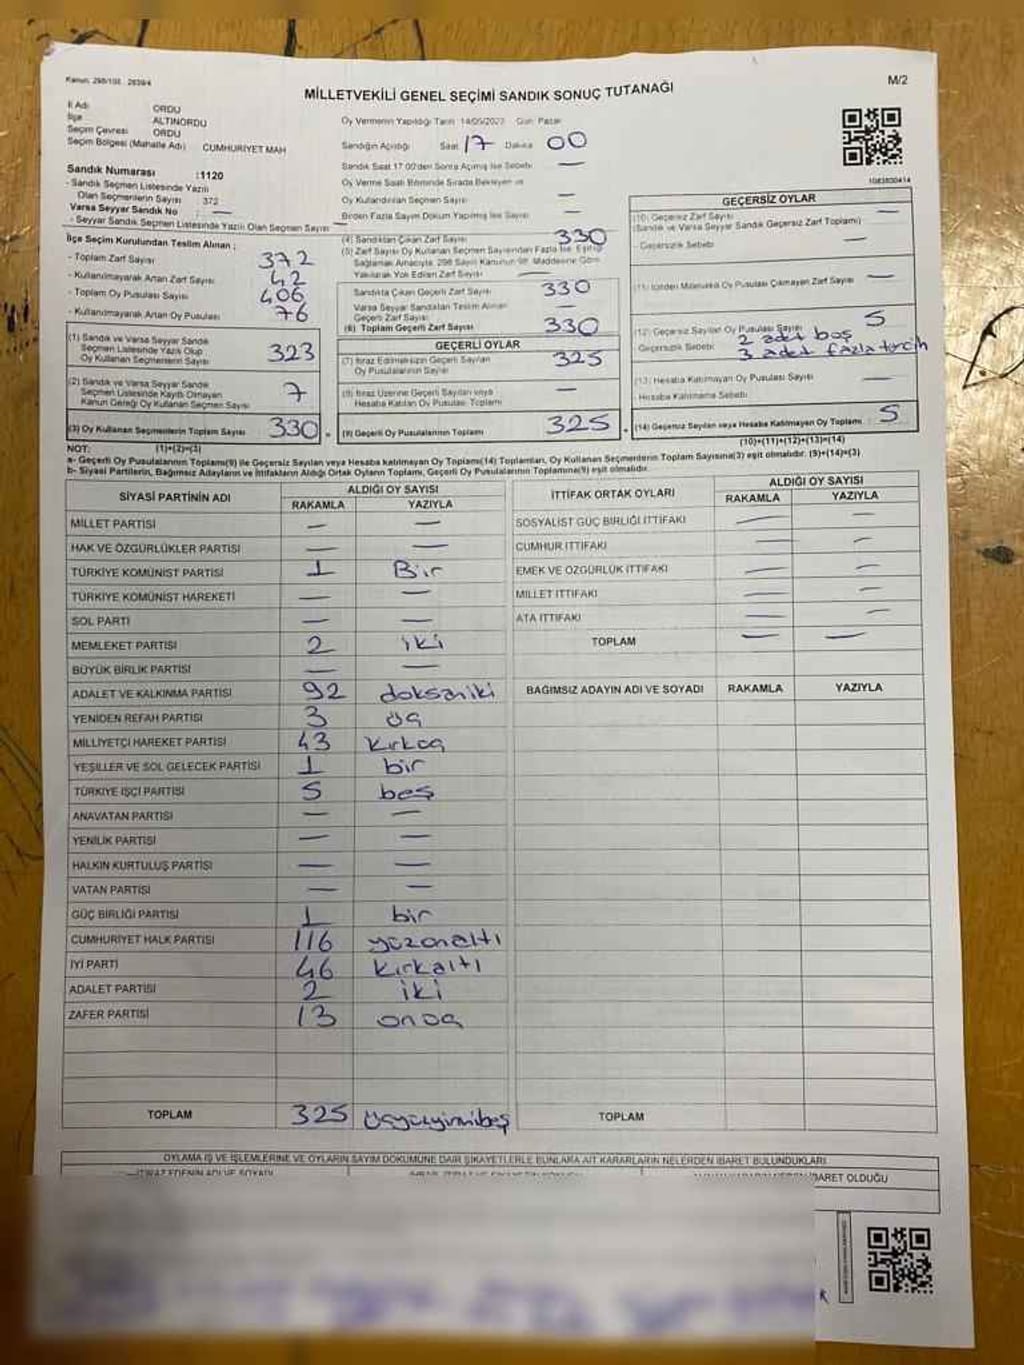 Kanun: 298/105 - 2839/4
M/2
MİLLETVEKİLİ GENEL SEÇİMİ SANDIK SONUÇ TUTANAĞI
İl Adı ORDU
İlçe ALTINORDU
Seçim Çevresi ORDU
Seçim Bölgesi (Mahalle Adı) CUMHURİYET MAH
Sandık Numarası :1120
- Sandık Seçmen Listesinde Yazılı
Olan Seçmenlerin Sayısı : 372
Varsa Seyyar Sandık No : —
- Seyyar Sandık Seçmen Listesinde Yazılı Olan Seçmen Sayısı : —
Oy Vermenin Yapıldığı Tarih :14/05/2023 Gün: Pazar
Sandığın Açıldığı Saat 17 Dakika 00
Sandık Saat 17.00'den Sonra Açılmış İse Sebebi: —
Oy Verme Saati Bitiminde Sırada Bekleyen ve
Oy Kullandırılan Seçmen Sayısı —
Birden Fazla Sayım Döküm Yapılmış İse Sayısı —
İlçe Seçim Kurulundan Teslim Alınan ;
- Toplam Zarf Sayısı 372
- Kullanılmayarak Artan Zarf Sayısı 42
- Toplam Oy Pusulası Sayısı 406
- Kullanılmayarak Artan Oy Pusulası 76
(1) Sandık ve Varsa Seyyar Sandık
Seçmen Listesinde Yazılı Olup
Oy Kullanan Seçmenlerin Sayısı 323
(2) Sandık ve Varsa Seyyar Sandık
Seçmen Listesinde Kayıtlı Olmayan
Kanun Gereği Oy Kullanan Seçmen Sayısı 7
(3) Oy Kullanan Seçmenlerin Toplam Sayısı 330
(1)+(2)=(3)
(4) Sandıktan Çıkan Zarf Sayısı 330
(5) Zarf Sayısı Oy Kullanan Seçmen Sayısından Fazla İse, Eşitliği
Sağlamak Amacıyla 298 Sayılı Kanunun 98. Maddesine Göre
Yakılarak Yok Edilen Zarf Sayısı —
Sandıkta Çıkan Geçerli Zarf Sayısı 330
Varsa Seyyar Sandıktan Teslim Alınan
Geçerli Zarf Sayısı —
(6) Toplam Geçerli Zarf Sayısı 330
GEÇERLİ OYLAR
(7) İtiraz Edilmeksizin Geçerli Sayılan
Oy Pusulalarının Sayısı 325
(8) İtiraz Üzerine Geçerli Sayılan veya
Hesaba Katılan Oy Pusulası Toplamı —
(9) Geçerli Oy Pusulalarının Toplamı 325
1083800414
GEÇERSİZ OYLAR
(10) Geçersiz Zarf Sayısı —
(Sandık ve Varsa Seyyar Sandık Geçersiz Zarf Toplamı)
- Geçersizlik Sebebi: —
(11) İçinden Milletvekili Oy Pusulası Çıkmayan Zarf Sayısı —
(12) Geçersiz Sayılan Oy Pusulası Sayısı 5
Geçersizlik Sebebi: 2 adet boş
3 adet fazla tercih
(13) Hesaba Katılmayan Oy Pusulası Sayısı —
- Hesaba Katılmama Sebebi:
(14) Geçersiz Sayılan veya Hesaba Katılmayan Oy Toplamı : 5
(10)+(11)+(12)+(13)=(14)
NOT:
a- Geçerli Oy Pusulalarının Toplamı(9) ile Geçersiz Sayılan veya Hesaba katılmayan Oy Toplamı(14) Toplamları, Oy Kullanan Seçmenlerin Toplam Sayısına(3) eşit olmalıdır. (9)+(14)=(3)
b- Siyasi Partilerin, Bağımsız Adayların ve İttifakların Aldığı Oy Toplamı, Geçerli Oy Pusulalarının Toplamına(9) eşit olmalıdır.
SİYASİ PARTİNİN ADI ALDIĞI OY SAYISI
RAKAMLA YAZIYLA
MİLLET PARTİSİ — —
HAK VE ÖZGÜRLÜKLER PARTİSİ — —
TÜRKİYE KOMÜNİST PARTİSİ 1 Bir
TÜRKİYE KOMÜNİST HAREKETİ — —
SOL PARTİ — —
MEMLEKET PARTİSİ 2 iki
BÜYÜK BİRLİK PARTİSİ — —
ADALET VE KALKINMA PARTİSİ 92 doksaniki
YENİDEN REFAH PARTİSİ 3 üç
MİLLİYETÇİ HAREKET PARTİSİ 43 kırküç
YEŞİLLER VE SOL GELECEK PARTİSİ 1 bir
TÜRKİYE İŞÇİ PARTİSİ 5 beş
ANAVATAN PARTİSİ — —
YENİLİK PARTİSİ — —
HALKIN KURTULUŞ PARTİSİ — —
VATAN PARTİSİ — —
GÜÇ BİRLİĞİ PARTİSİ 1 bir
CUMHURİYET HALK PARTİSİ 116 yüzonaltı
İYİ PARTİ 46 kırkaltı
ADALET PARTİSİ 2 iki
ZAFER PARTİSİ 13 onüç
TOPLAM 325 üçyüzyirmibeş
İTTİFAK ORTAK OYLARI ALDIĞI OY SAYISI
RAKAMLA YAZIYLA
SOSYALİST GÜÇ BİRLİĞİ İTTİFAKI — —
CUMHUR İTTİFAKI — —
EMEK VE ÖZGÜRLÜK İTTİFAKI — —
MİLLET İTTİFAKI — —
ATA İTTİFAKI — —
TOPLAM — —
BAĞIMSIZ ADAYIN ADI VE SOYADI RAKAMLA YAZIYLA
TOPLAM
OYLAMA İŞ VE İŞLEMLERİNE VE OYLARIN SAYIM DÖKÜMÜNE DAİR ŞİKAYETLERLE BUNLARA AİT KARARLARIN NELERDEN İBARET BULUNDUKLARI
İTİRAZ EDENİN ADI VE SOYADI
OLDUĞU